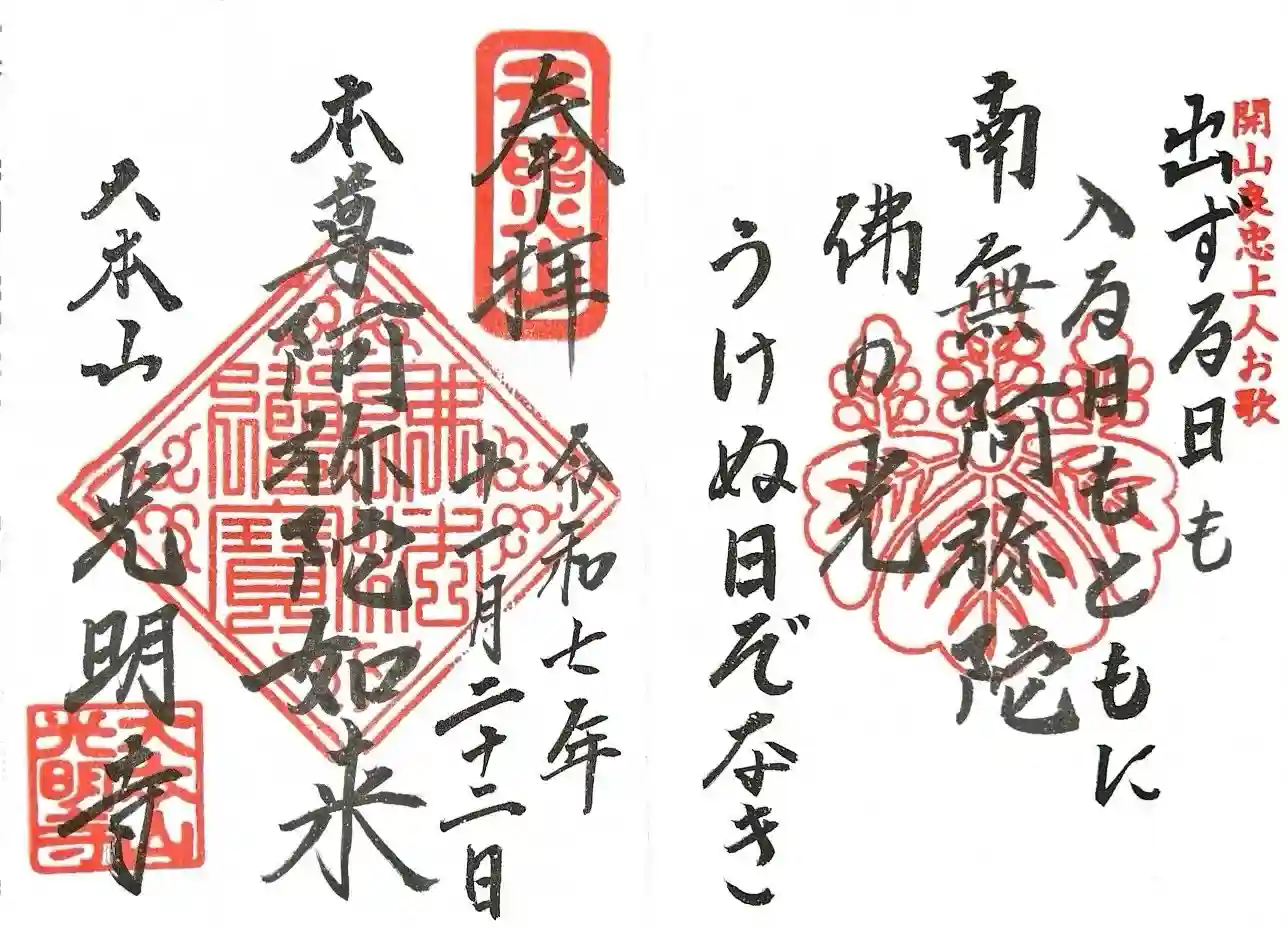 開山良忠上人お歌
出ずる日も
入る日もともに
南無阿弥陀
佛の光
うけぬ日ぞなき
奉拝
令和七年
十一月二十二日
本尊阿弥陀如来
大本山
光明寺
佛法僧寶
大本山
光明寺